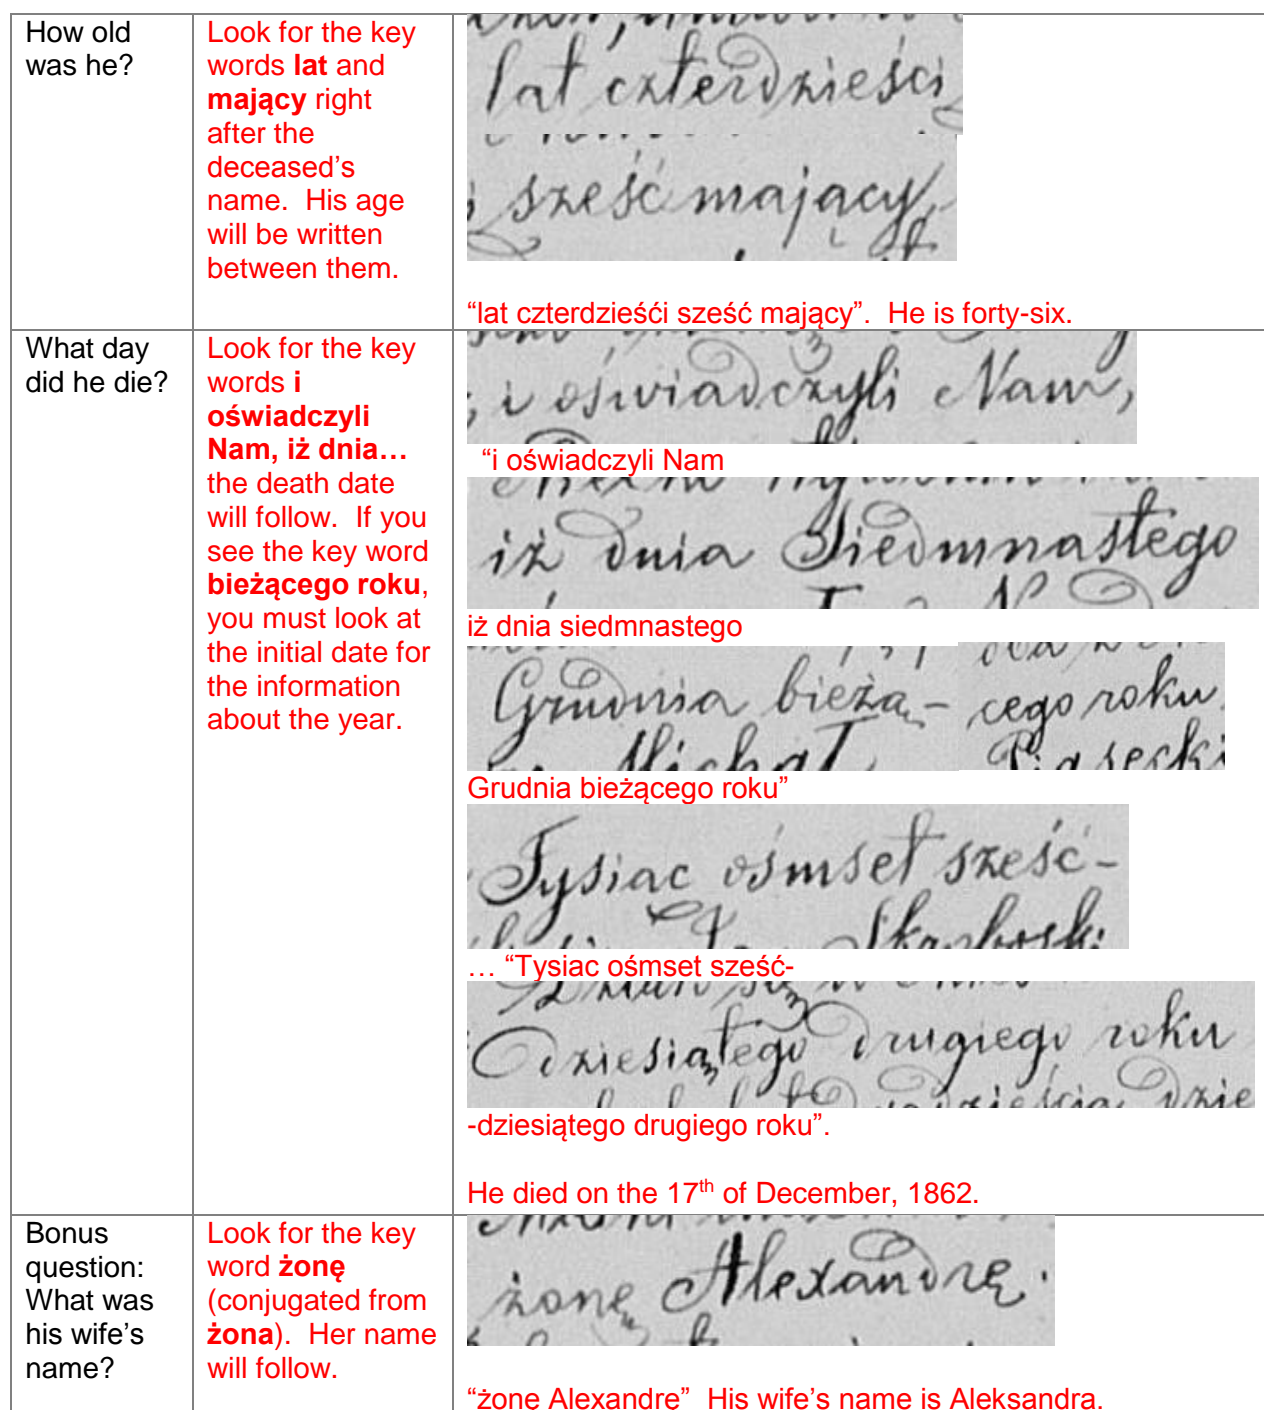 How old
was he?
Look for the key
words lat and
mający right
after the
deceased’s
name. His age
will be written
between them.
lat czterdzieści
sześć mający,
“lat czterdzieśći sześć mający”. He is forty-six.
What day
did he die?
Look for the key
words i
oświadczyli
Nam, iż dnia…
the death date
will follow. If you
see the key word
bieżącego roku,
you must look at
the initial date for
the information
about the year.
, i oświadczyli Nam,
“i oświadczyli Nam
iż dnia Siedmnastego
iż dnia siedmnastego
Grudnia bieżą- cego roku
Michał Piasecki
Grudnia bieżącego roku”
Tysiac ośmset sześć-
… “Tysiac ośmset sześć-
dziesiątego drugiego roku
-dziesiątego drugiego roku”.
He died on the 17th of December, 1862.
Bonus
question:
What was
his wife’s
name?
Look for the key
word żonę
(conjugated from
żona). Her name
will follow.
żonę Alexandrę.
“żone Alexandre” His wife’s name is Aleksandra.